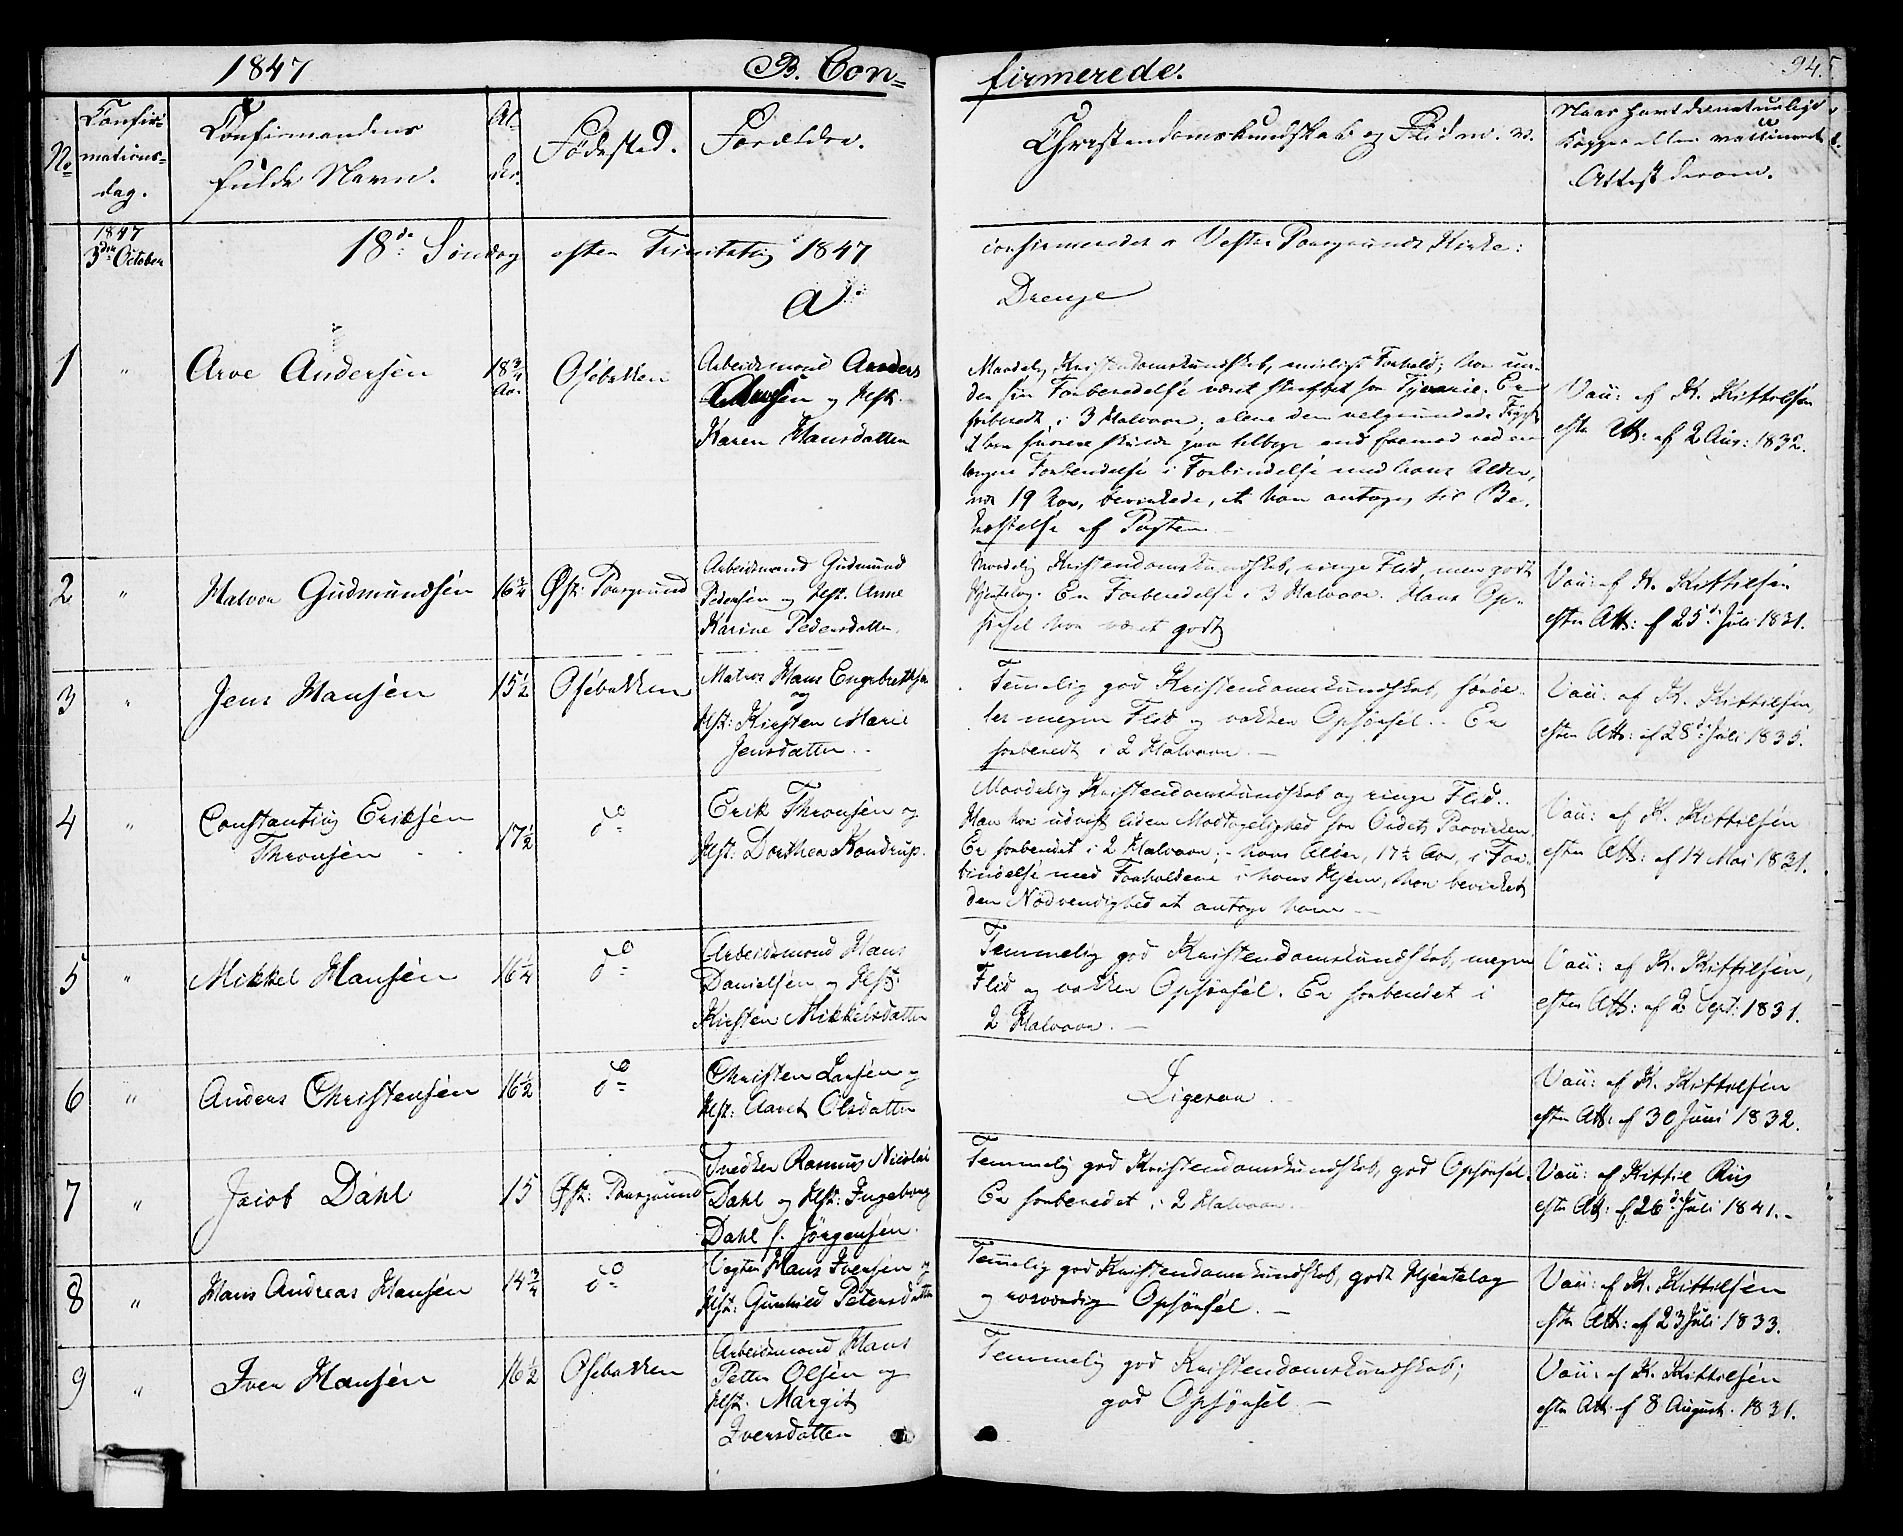 1847 B. Con=
firmerede.
94.
No
Confir=
mations=
dag.
Confirmandens
fulde Navn.
Al-
der.
Fødested.
Forældre.
Christendomskundskab og Fliden. v.
Naar havt de naturlige
Kopper eller vaccineret
Attest derom.
1847
3die October
18de Søndag efter Trinitatis 1847
confirmerede i Vester Porsgrunds Kirke:
A.
Drenge
1 " Arve Andersen 18 3/4 Aar Osebakken
Arbeidsmand Anders
og Hst.
Karen Hansdatter
Maadelig Kristendomskundskab, misligt Forhold; har un-
der sin Forberedelse været straffet for Tyverie. Er
forberedt i 3 Halvaar; alene den velgrundede Frygt
at han snarere skulde gaa tilbage end fremad ved en
længere Forberedelse i Forbindelse med hans Alder,
19 Aar, bevirkede, at han antages til Be-
kræftelse af Pagten
Vac: af K. Kittelsen
efter Att: af 2 Aug: 1832.
2 " Halvor Gudmundsen 16 3/4 Øst: Porsgrund
Arbeidsmand Gudmund
Pedersen og Hst. Anne
Karine Pedersdatter.
Maadelig Kristendomskundskab, ringe Flid, men godt
Hjertelag. Er Forberedelse i 3 Halvaar. Hans Op-
førsel har været godt
Vac: af K. Kittilsen
efter Att: af 25de Juli 1831.
3 " Jens Hansen 15 1/2 Osebakken
Matros Hans Engebrethsen
og
Hst: Kirsten Marie
Jensdatter.
Temmelig god Kristendomskundskab,
megen Flid og vakker Opførsel. Er
forberedt i 2 Halvaar.
Vac: af K. Kittilsen,
efter Att: af 28de Juli 1835.
4 " Constantius Eriksen
Thronsen
17 1/2 do
Erik Thronsen og
Hst: Dorthea Kondrup.
Maadelig Kristendomskundskab og ringe Flid.
Han har udvist liden Modtagelighed for Ordets Paavirken.
Er forberedet i 2 Halvaar; hans Alder, 17 1/2 Aar, i For-
bindelse med Forholdene i hans Hjem, har bevirket
den Nødvendighed at antage ham
Vac: af K. Kittilsen
efter Att: af 14 Mai 1831.
5 " Mikkel Hansen 16 1/4 do
Arbeidsmand Hans
Danielsen og Hst:
Kirsten Mikkelsdatter
Temmelig god Kristendomskundskab, megen
Flid og vakker Opførsel. Er forberedet i
2 Halvaar.
Vac: af K. Kittilsen,
efter Att: af 2 Sept: 1831.
6 " Anders Christensen 16 1/2 do
Christen Larsen og
Hst: Aaret Olsdatter
Ligesaa
Vac: af K. Kittelsen
efter Att: af 30 Juni 1832.
7 " Jacob Dahl 15 Øst: Porsgrund
Snedker Rasmus Nicolai
Dahl og Hst: Ingeborg
Dahl f. Jørgensen.
Temmelig god Kristendomskundskab, god Opførsel.
Er forberedet i 2 Halvaar.
Vac: af Kittil Riis
efter Att: af 26de Juli 1841.
8 " Hans Andreas Hansen 14 3/4 do
Vægter Hans Iversen og
Hst: Gunhild Petersdatter
Temmelig god Kristendomskundskab, godt Hjertelag
og rosværdig Opførsel.
Vac: af K. Kittelsen
efter Att: af 23 Juli 1833.
9 " Iver Hansen 16 1/2 Osebakken
Arbeidsmand Hans
Petter Olsen og
Hst. Margit
Iversdatter
Temmelig god Kristendomskundskab;
god Opførsel.
Vac: af K. Kittilsen
efter Att. af 8 August. 1831.